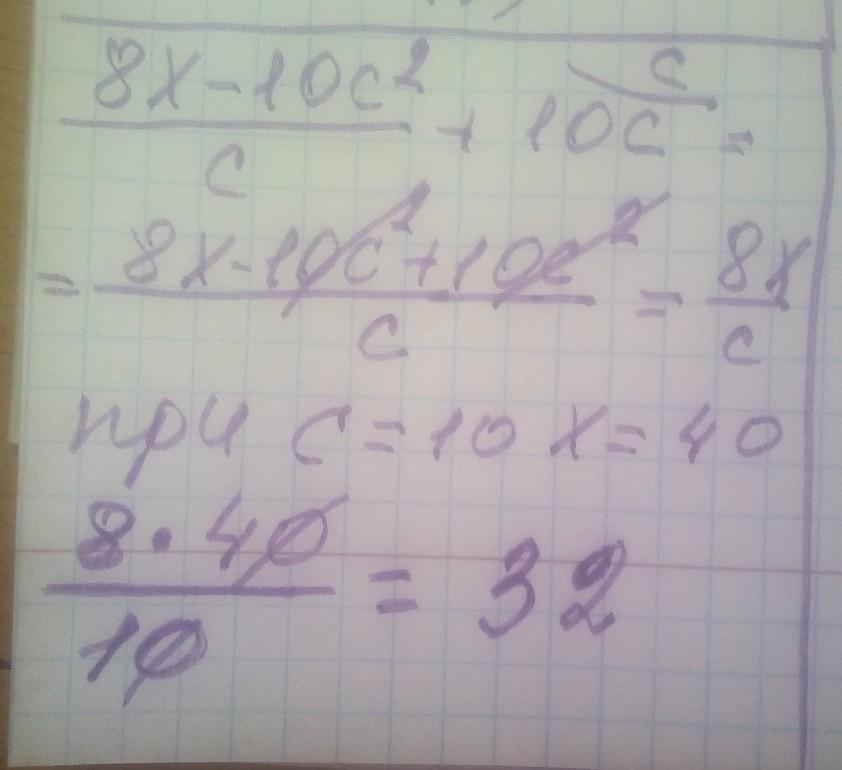 8x-10c²/c + 10c \c =
= 8x-10c²+10c²/c = 8x/c
при c=10 x=40
8·40/10 = 32